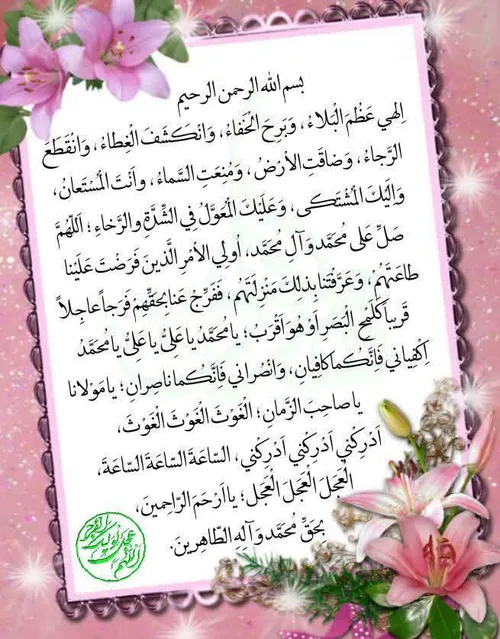 بسم الله الرحمن الرحیم
اِلهي عَظُمَ الْبَلاءُ، وَبَرِحَ الْخَفاءُ، وَانْكَشَفَ الْغِطاءُ، وَانْقَطَعَ
الرَّجاءُ، وَضاقَتِ الأرْضُ، وَمُنِعَتِ السَّماءُ، وأنْتَ الْمُسْتَعانُ،
وَاِلَيْكَ الْمُشْتَكى، وَعَلَيْكَ الْمُعَوَّلُ فِي الشِّدَّةِ وَالرَّخاءِ؛ اَللّهُمَّ
صَلِّ عَلى مُحَمَّد وَآلِ مُحَمَّد، اُولِي الأمْرِ الَّذينَ فَرَضْتَ عَلَيْنا
طاعَتَهُمْ، وَعَرَّفْتَنا بِذلِكَ مَنْزِلَتَهُم، فَفَرِّجْ عَنا بِحَقِّهِمْ فَرَجاً عاجِلاً
قَريباً كَلَمْحِ الْبَصَرِ اَوْ هُوَ اَقْرَبُ؛ يا مُحَمَّدُ يا عَلِيُّ يا عَلِيُّ يا مُحَمَّدُ
اِكْفِياني فَاِنَّكُما كافِيانِ، وَانْصُراني فَاِنَّكُما ناصِرانِ؛ يا مَوْلانا
يا صاحِبَ الزَّمانِ؛ الْغَوْثَ الْغَوْثَ الْغَوْثَ،
اَدْرِكْني اَدْرِكْني اَدْرِكْني، السّاعَةَ السّاعَةَ السّاعَةَ،
الْعَجَلَ الْعَجَلَ الْعَجَل؛ يا اَرْحَمَ الرّاحِمينَ،
بِحَقِّ مُحَمَّد وَآلِهِ الطّاهِرينَ.
اللهم عجل لولیک الفرج